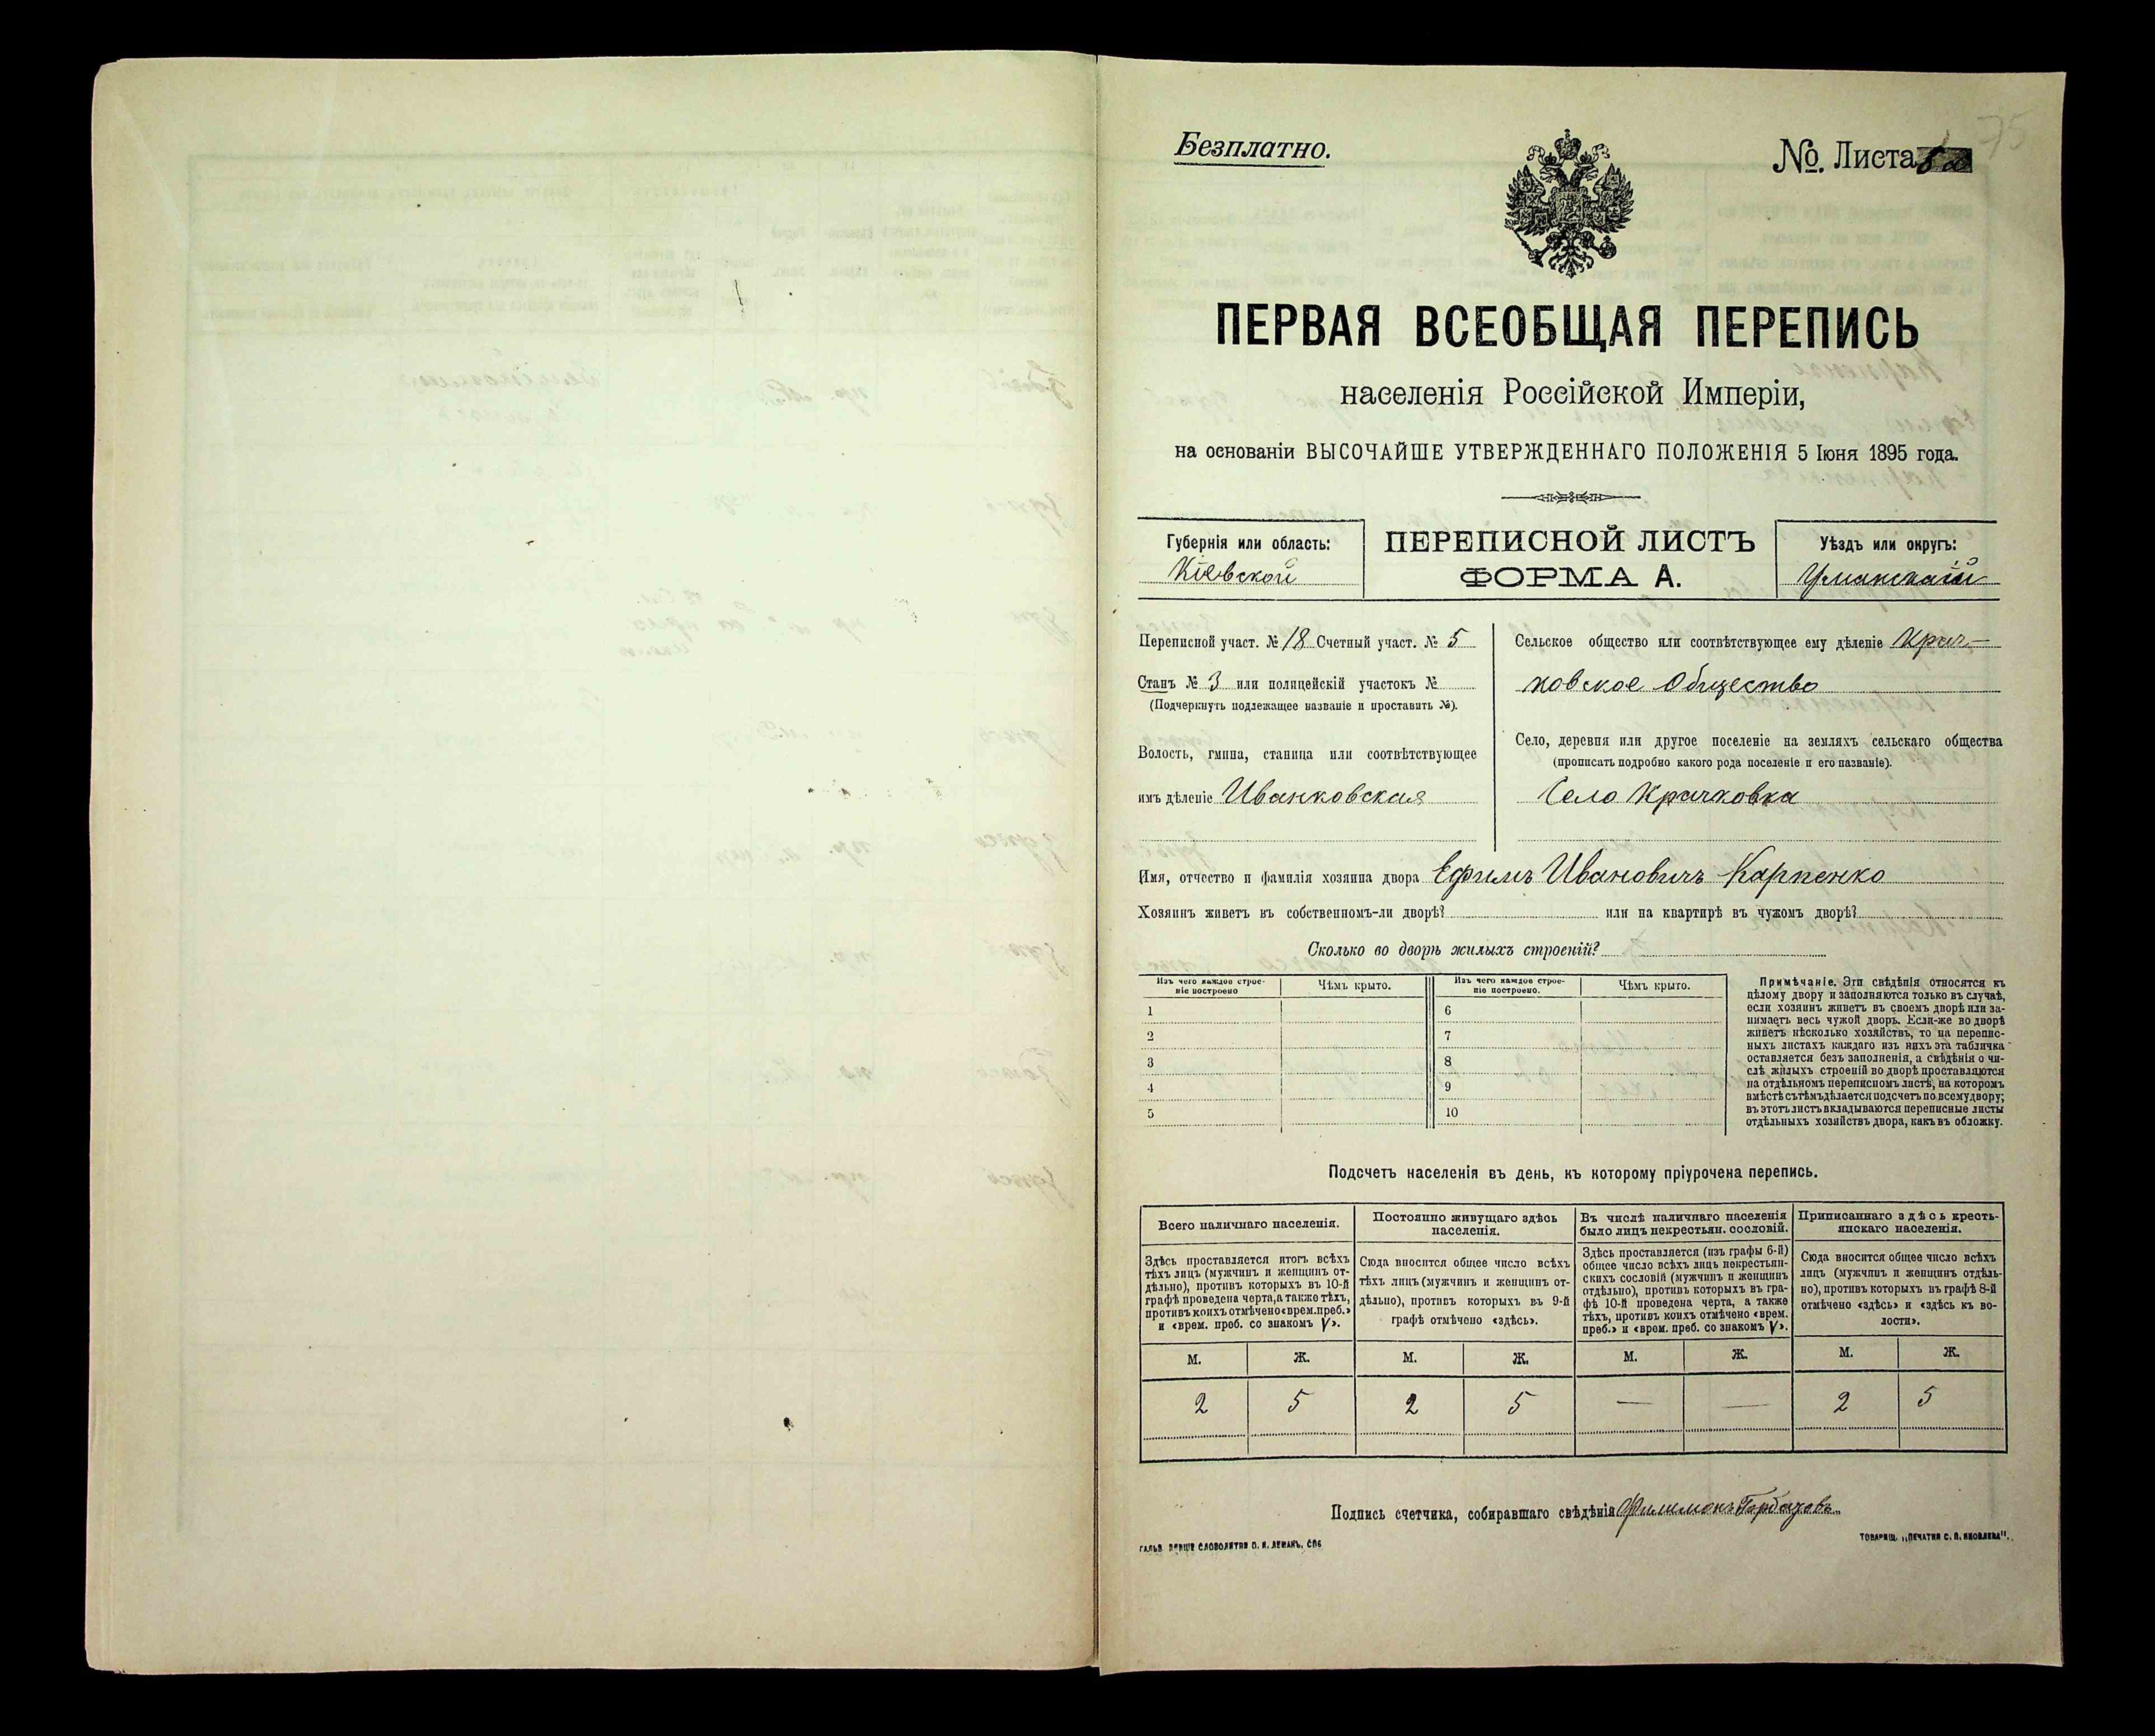 75
Безплатно.
№. Листа
ПЕРВАЯ ВСЕОБЩАЯ ПЕРЕПИСЬ
населенія Россійской Имперіи,
на основаніи ВЫСОЧАЙШЕ УТВЕРЖДЕННАГО ПОЛОЖЕНІЯ 5 Іюня 1895 года.
Губернія или область:
Кіевской
ПЕРЕПИСНОЙ ЛИСТЪ
ФОРМА А.
Уѣздъ или округъ:
Уманскій
Переписной участ. № 18 Счетный участ. № 5
Станъ № 3 или полицейскій участокъ №
(Подчеркнуть подлежащее названіе и проставить №).
Волость, гмина, станица или соотвѣтствующее
имъ дѣленіе Иванковская
Сельское общество или соотвѣтствующее ему дѣленіе Крач-
ковское Общество
Село, деревня или другое поселеніе на земляхъ сельскаго общества
(прописать подробно какого рода поселеніе и его названіе).
Село Крачковка
Имя, отчество и фамилія хозяина двора Ефимъ Ивановичъ Карпенко
Хозяинъ живетъ въ собственномъ-ли дворѣ? или на квартирѣ въ чужомъ дворѣ?
Сколько во дворѣ жилыхъ строеній?
Изъ чего каждое строе-
ніе построено
Чѣмъ крыто.
Изъ чего каждое строе-
ніе построено.
Чѣмъ крыто.
1
6
2
7
3
8
4
9
5
10
Примѣчаніе. Эти свѣдѣнія относятся къ
цѣлому двору и заполняются только въ случаѣ,
если хозяинъ живетъ въ своемъ дворѣ или за-
нимаетъ весь чужой дворъ. Если-же во дворѣ
живетъ нѣсколько хозяйствъ, то на перепис-
ныхъ листахъ каждаго изъ нихъ эта табличка
оставляется безъ заполненія, а свѣдѣнія о чи-
слѣ жилыхъ строеній во дворѣ проставляются
на отдѣльномъ переписномъ листѣ, на которомъ
вмѣстѣ съ тѣмъ дѣлается подсчетъ по всему двору;
въ этотъ листъ вкладываются переписные листы
отдѣльныхъ хозяйствъ двора, какъ въ обложку.
Подсчетъ населенія въ день, къ которому пріурочена перепись.
Всего наличнаго населенія.
Здѣсь проставляется итогъ всѣхъ
тѣхъ лицъ (мужчинъ и женщинъ от-
дѣльно), противъ которыхъ въ 10-й
графѣ проведена черта, а также тѣхъ,
противъ коихъ отмѣчено «врем. преб.»
и «врем. преб. со знакомъ V».
Постоянно живущаго здѣсь
населенія.
Сюда вносится общее число всѣхъ
тѣхъ лицъ (мужчинъ и женщинъ от-
дѣльно), противъ которыхъ въ 9-й
графѣ отмѣчено «здѣсь».
Въ числѣ наличнаго населенія
было лицъ некрестьян. сословій.
Здѣсь проставляется (изъ графы 6-й)
общее число всѣхъ лицъ некрестьян-
скихъ сословій (мужчинъ и женщинъ
отдѣльно), противъ которыхъ въ гра-
фѣ 10-й проведена черта, а также
тѣхъ, противъ коихъ отмѣчено «врем.
преб.» и «врем. преб. со знакомъ V».
Приписаннаго здѣсь кресть-
янскаго населенія.
Сюда вносится общее число всѣхъ
лицъ (мужчинъ и женщинъ отдѣль-
но), противъ которыхъ въ графѣ 8-й
отмѣчено «здѣсь» и «здѣсь къ во-
лости».
М. Ж. М. Ж. М. Ж. М. Ж.
2 5 2 5 — — 2 5
Подпись счетчика, собиравшаго свѣдѣнія Филимонъ Горбачовъ
СЛОВОЛИТНИ О. И. ЛЕМАНЪ, СПБ
ТОВАРИЩ. „ПЕЧАТНЯ С. П. ЯКОВЛЕВА".